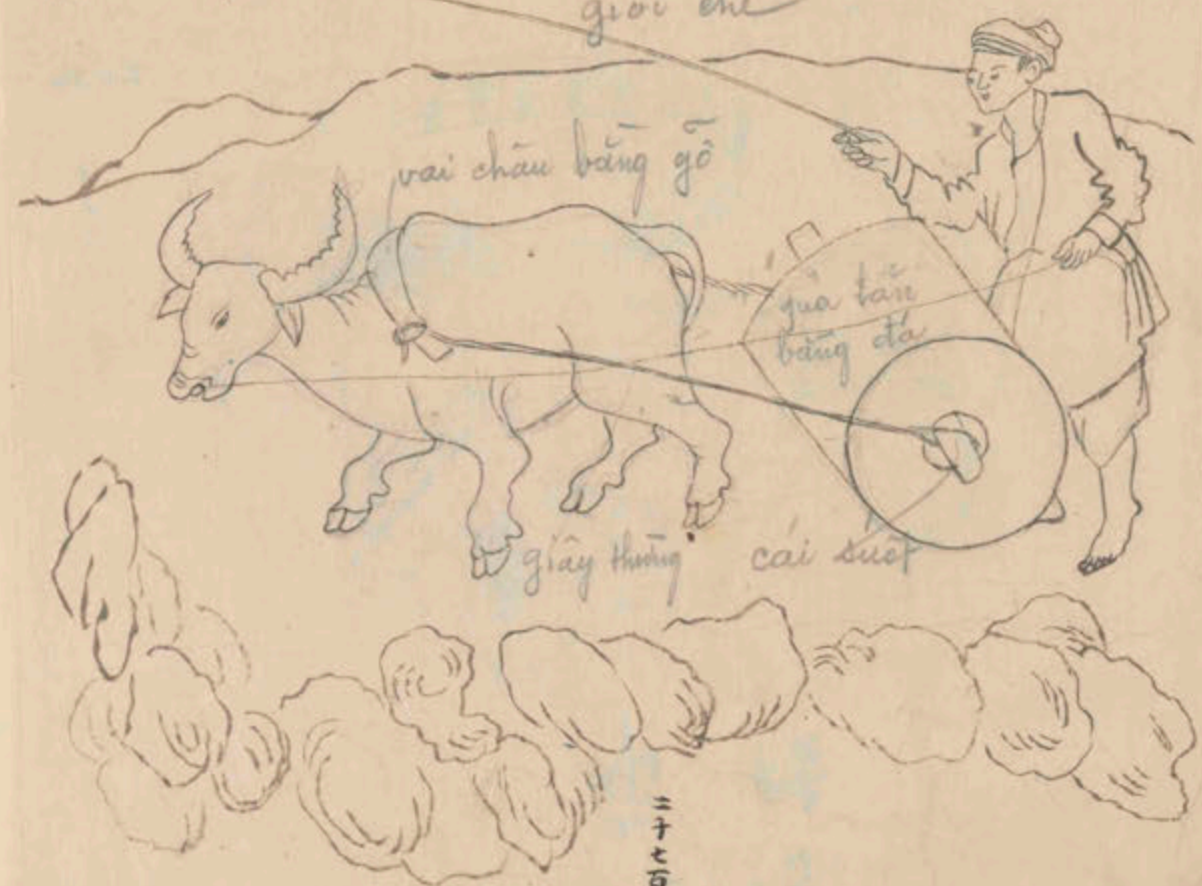 giới chẻ
vai chău bằng gỗ
qua lăn
bằng đá
giây thừng cái suốt
二千七百